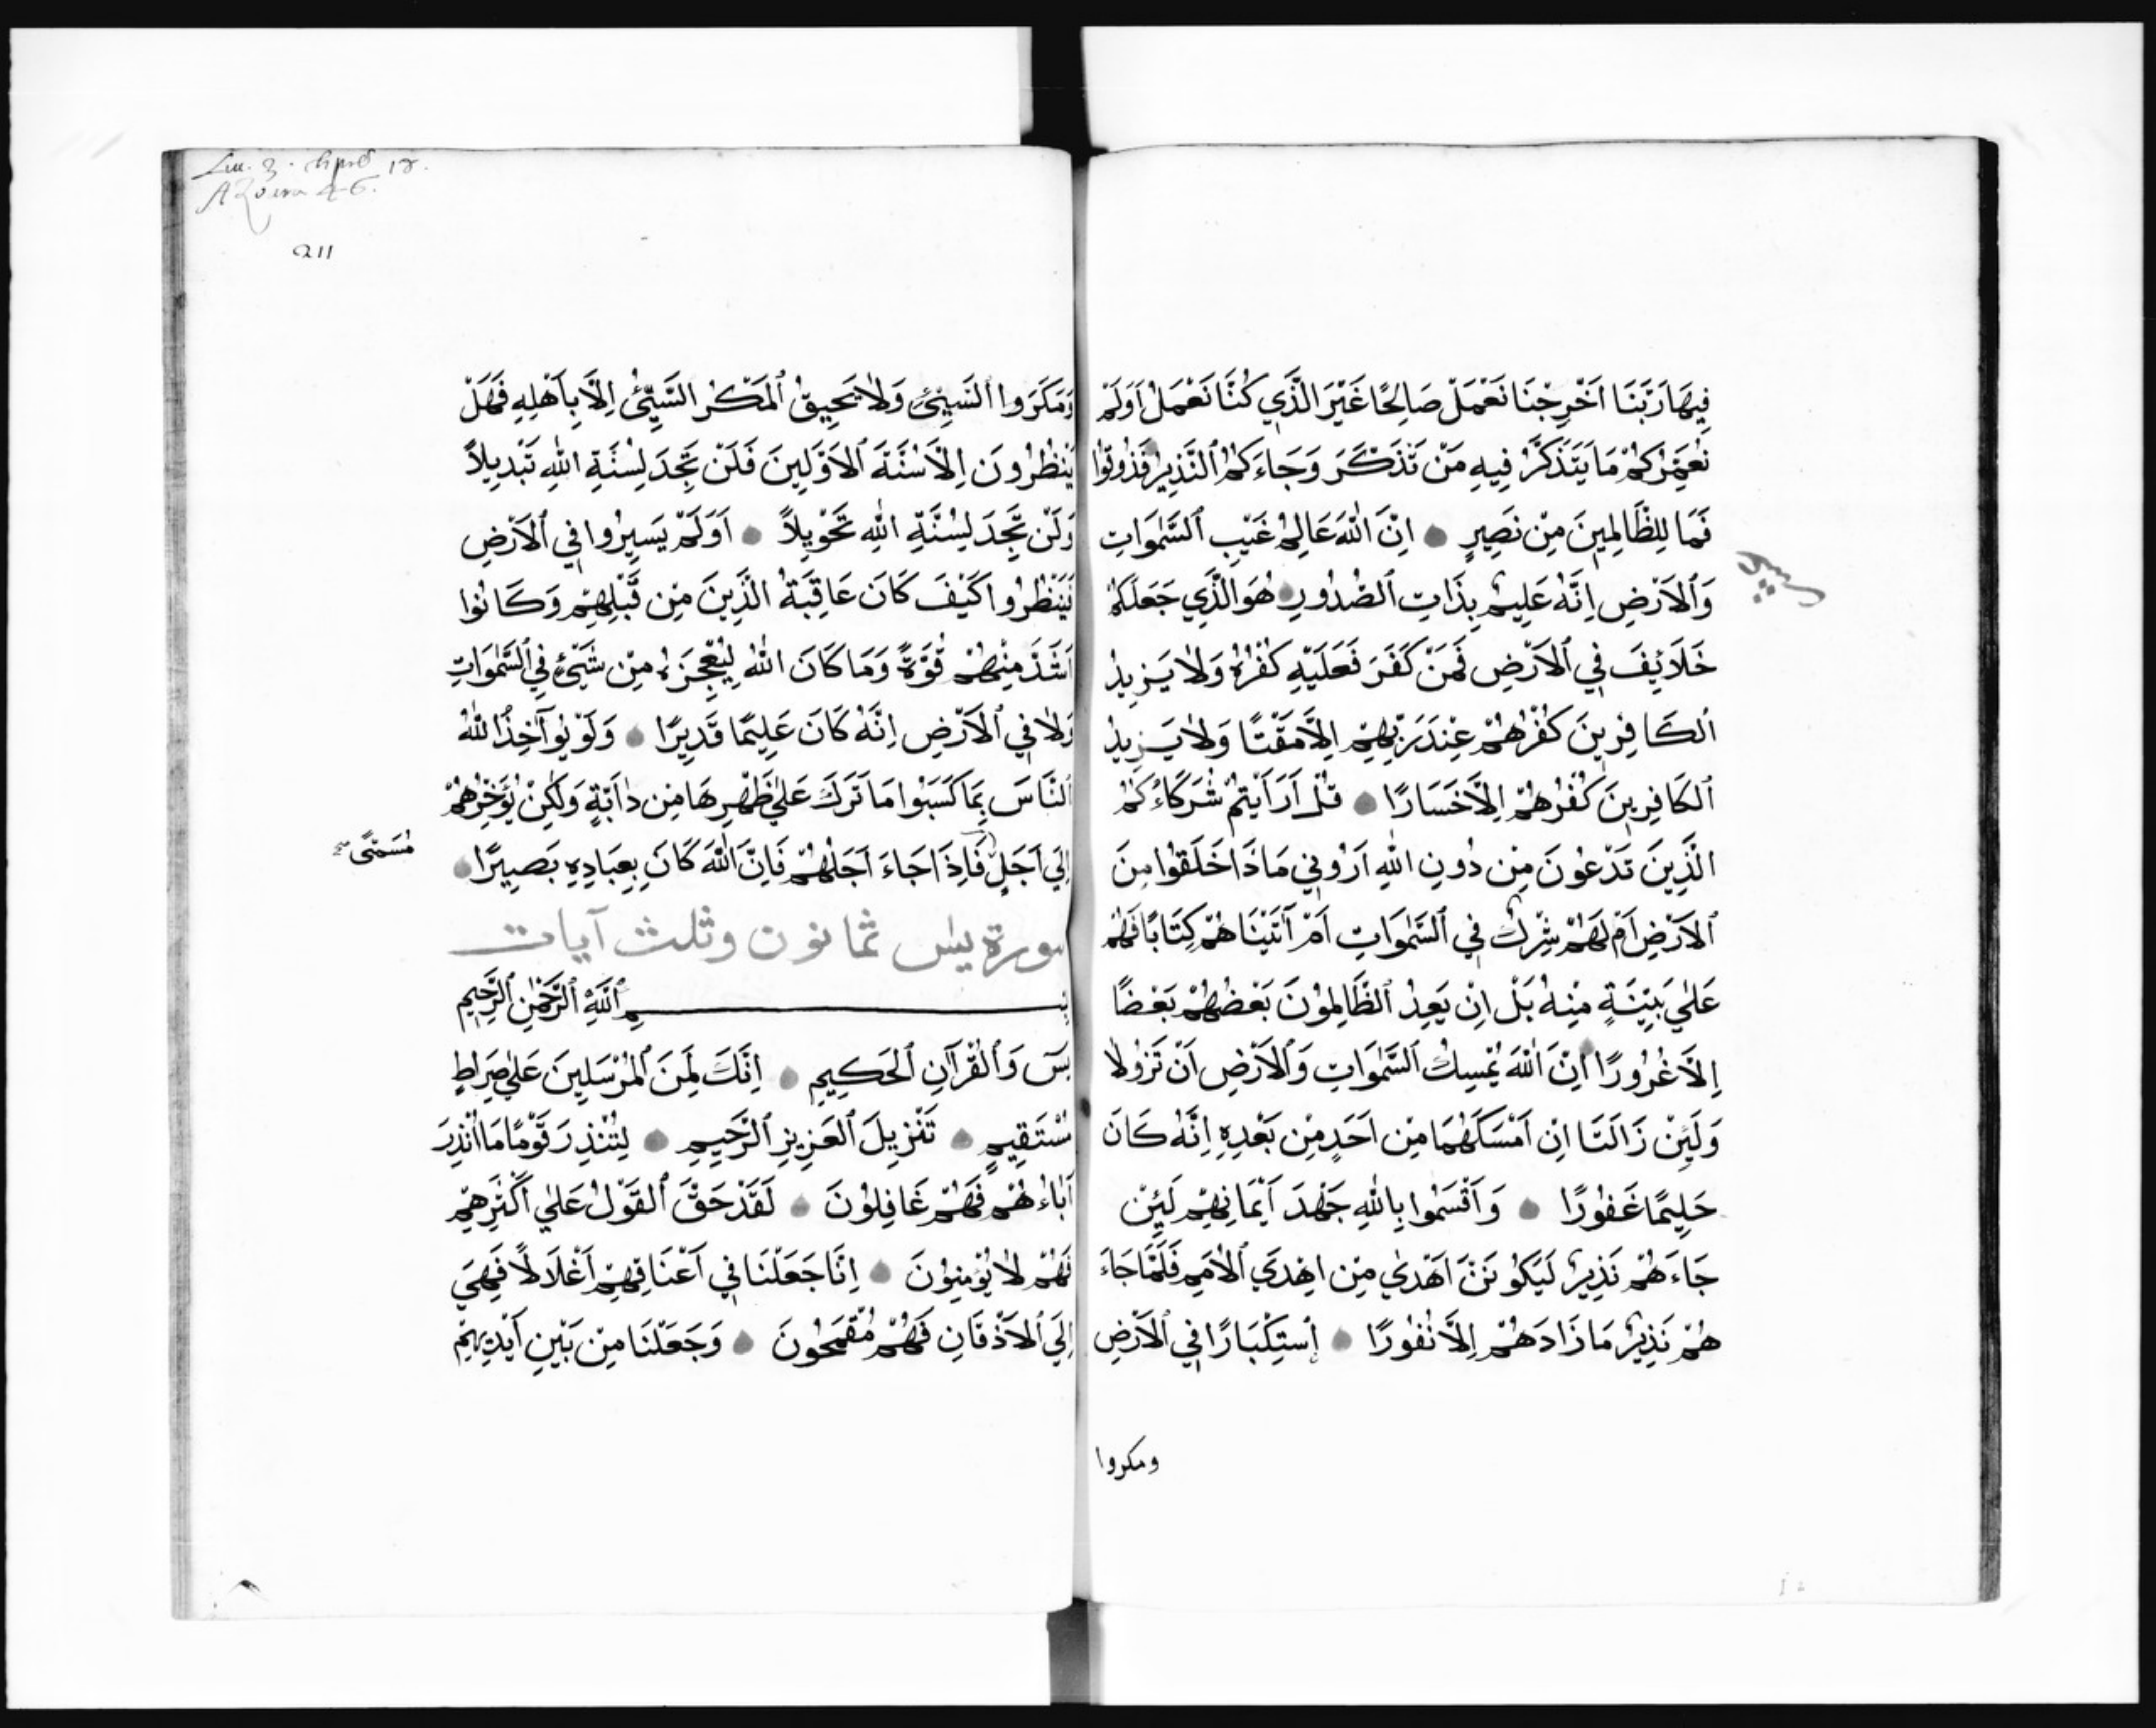 فِيهَا رَبَّنَا اَخْرِجْنَا نَعْمَلْ صَالِحًا غَيْرَ الَّذِي كُنَّا نَعْمَلُ اَوَلَمْ
نُعَمِّرْكُمْ مَا يَتَذَكَّرُ فِيهِ مَنْ تَذَكَّرَ وَجَاءَكُمُ ٱلنَّذِيرُ فَذُوقُوا
فَمَا لِلظَّالِمِينَ مِنْ نَصِيرٍ اِنَّ اللّٰهَ عَالِمُ غَيْبِ ٱلسَّمٰوَاتِ
وَٱلاَرْضِ اِنَّهُ عَلِيمٌ بِذَاتِ ٱلصُّدُورِ هُوَ الَّذِي جَعَلَكُمْ
خَلَائِفَ فِي ٱلاَرْضِ فَمَنْ كَفَرَ فَعَلَيْهِ كُفْرُهُ وَلَا يَزِيدُ
ٱلكَافِرِينَ كُفْرُهُمْ عِنْدَ رَبِّهِمْ اِلَّا مَقْتًا وَلَا يَزِيدُ
ٱلكَافِرِينَ كُفْرُهُمْ اِلَّا خَسَارًا قُلْ اَرَاَيْتُمْ شُرَكَاءَكُمْ
الَّذِينَ تَدْعُونَ مِنْ دُونِ اللّٰهِ اَرُونِي مَاذَا خَلَقُوا مِنَ
ٱلاَرْضِ اَمْ لَهُمْ شِرْكٌ فِي ٱلسَّمٰوَاتِ اَمْ اٰتَيْنَاهُمْ كِتَابًا فَهُمْ
عَلٰي بَيِّنَةٍ مِنْهُ بَلْ اِنْ يَعِدُ ٱلظَّالِمُونَ بَعْضُهُمْ بَعْضًا
اِلَّا غُرُورًا اِنَّ اللّٰهَ يُمْسِكُ ٱلسَّمٰوَاتِ وَٱلاَرْضَ اَنْ تَزُولَا
وَلَئِنْ زَالَتَا اِنْ اَمْسَكَهُمَا مِنْ اَحَدٍ مِنْ بَعْدِهِ اِنَّهُ كَانَ
حَلِيمًا غَفُورًا وَاَقْسَمُوا بِاللّٰهِ جَهْدَ اَيْمَانِهِمْ لَئِنْ
جَاءَهُمْ نَذِيرٌ لَيَكُونَنَّ اَهْدٰي مِنْ اِهْدَي ٱلاُمَمِ فَلَمَّا جَاءَ
هُمْ نَذِيرٌ مَا زَادَهُمْ اِلَّا نُفُورًا اِسْتِكْبَارًا فِي ٱلاَرْضِ
ومكروا
211
وَمَكَرَوا ٱلسَّيِّئِ وَلَا يَحِيقُ ٱلمَكْرُ السَّيِّئُ اِلَّا بِاَهْلِهِ فَهَلْ
يَنْظُرُونَ اِلَّا سُنَّةَ ٱلاَوَّلِينَ فَلَنْ تَجِدَ لِسُنَّةِ اللّٰهِ تَبْدِيلاً
وَلَنْ تَجِدَ لِسُنَّةِ اللّٰهِ تَحْوِيلاً اَوَلَمْ يَسِيرُوا فِي ٱلاَرْضِ
فَيَنْظُرُوا كَيْفَ كَانَ عَاقِبَةُ الَّذِينَ مِنْ قَبْلِهِمْ وَكَانُوا
اَشَدَّ مِنْهُمْ قُوَّةً وَمَا كَانَ اللّٰهُ لِيُعْجِزَهُ مِنْ شَيْئٍ فِي ٱلسَّمٰوَاتِ
وَلَا فِي ٱلاَرْضِ اِنَّهُ كَانَ عَلِيمًا قَدِيرًا وَلَوْ يُوآخِذُ اللّٰهُ
ٱلنَّاسَ بِمَا كَسَبُوا مَا تَرَكَ عَلٰي ظَهْرِهَا مِن دَابَّةٍ وَلٰكِنْ يُؤَخِّرُهُمْ
اِلَي اَجَلٍ فَاِذَا جَاءَ اَجَلُهُمْ فَاِنَّ اللّٰهَ كَانَ بِعِبَادِهِ بَصِيرًا
مُسَمًّى صح
سورة يس ثمانون وثلث آيات
بِسمِ ٱللّٰهِ ٱلرَّحْمٰنِ ٱلرَّحِيمِ
يسٓ وَٱلقُرْآنِ ٱلحَكِيمِ اِنَّكَ لَمِنَ ٱلمُرْسَلِينَ عَلٰي صِرَاطٍ
مُسْتَقِيمٍ تَنْزِيلَ ٱلعَزِيزِ ٱلرَّحِيمِ لِتُنْذِرَ قَوْمًا مَا اُنْذِرَ
اٰبَاءُهُمْ فَهُمْ غَافِلُونَ لَقَدْ حَقَّ ٱلقَوْلُ عَلٰي اَكْثَرِهِمْ
فَهُمْ لَا يُؤْمِنُونَ اِنَّا جَعَلْنَا فِي اَعْنَاقِهِمْ اَغْلَالًا فَهِيَ
اِلَي ٱلاَذْقَانِ فَهُمْ مُقْمَحُونَ وَجَعَلْنَا مِنْ بَيْنِ اَيْدِيهِمْ